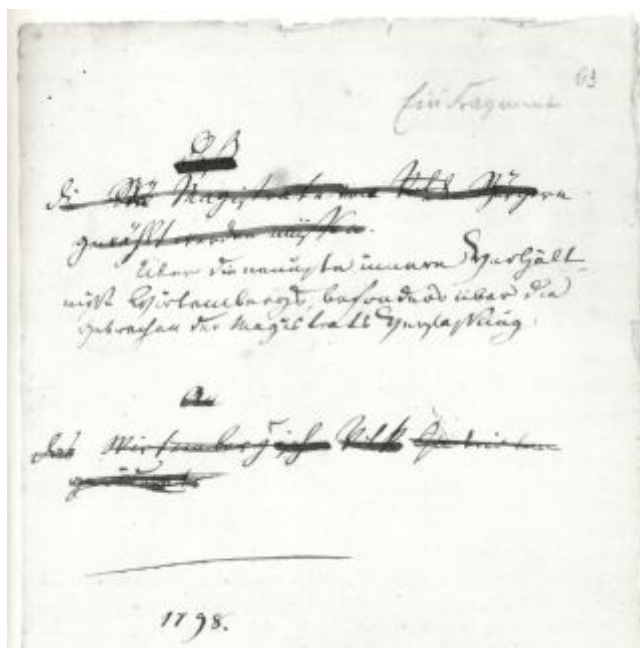 63
Ein Fragment
Daß
die Magistrate vom Volk Bürgern
gewählt werden müssen.
Über die neuesten innern Verhält
nisse Wirtembergs, besonders über die
Gebrechen der Magistrats Verfassung.
An
das Wirtembergische Volk
1798.